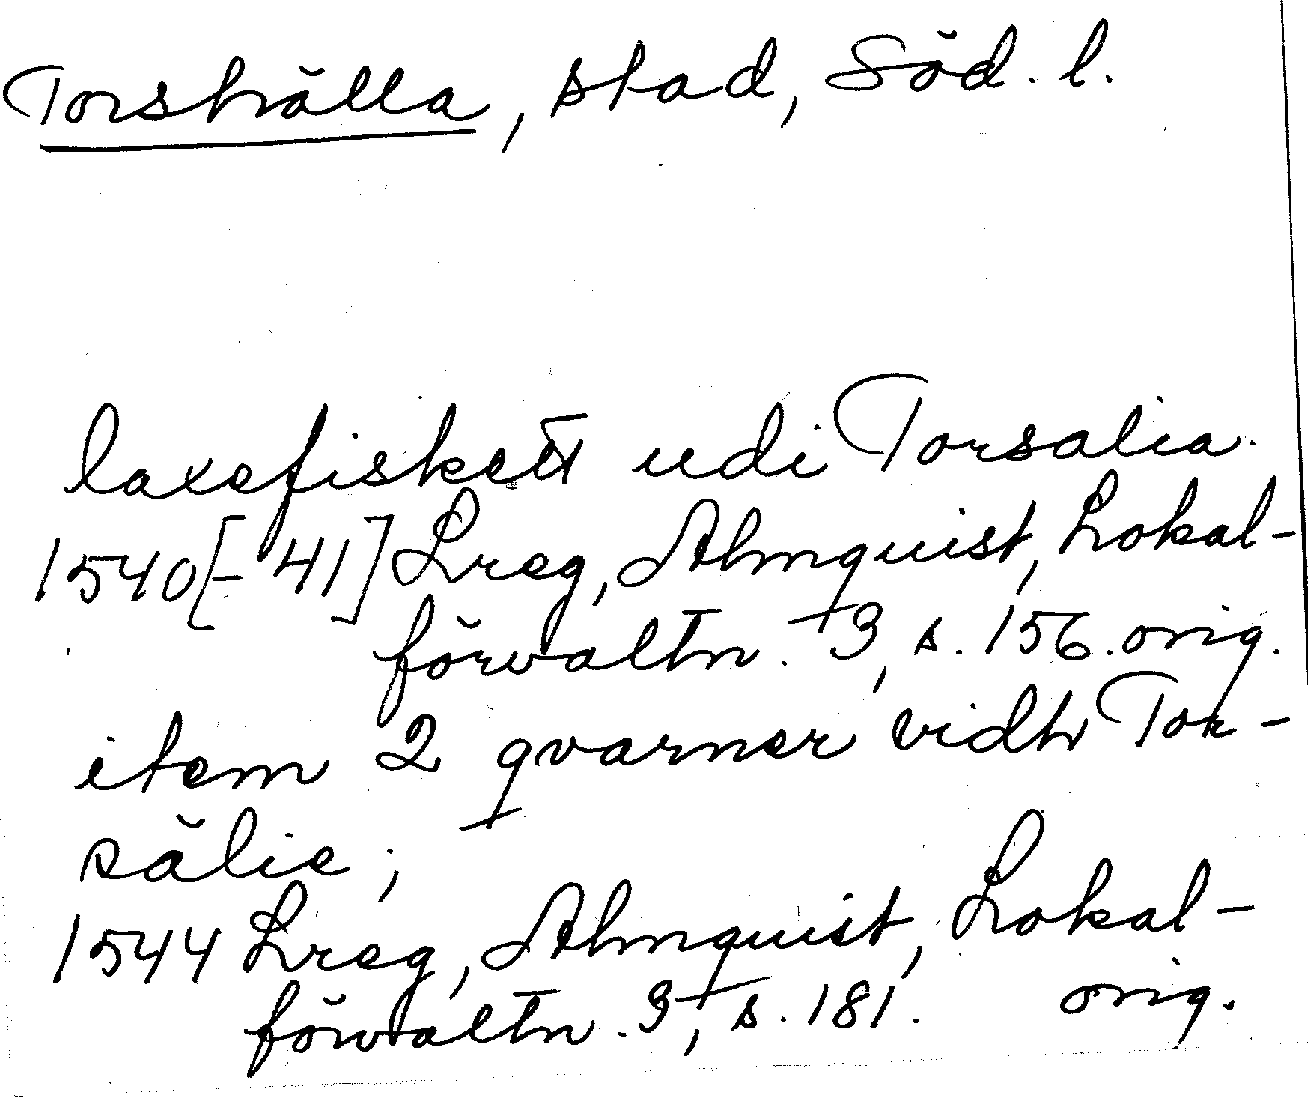 Torshälla, stad, Söd. l.
laxefiskett udi Torsalia
1540[-41] Lreg, Almquist, Lokal-
förvaltn. 3, s. 156. orig.
item 2 qvarner vidh Tor-
sälie;
1544 Lreg, Almquist, Lokal-
förvaltn. 3, s. 181. orig.